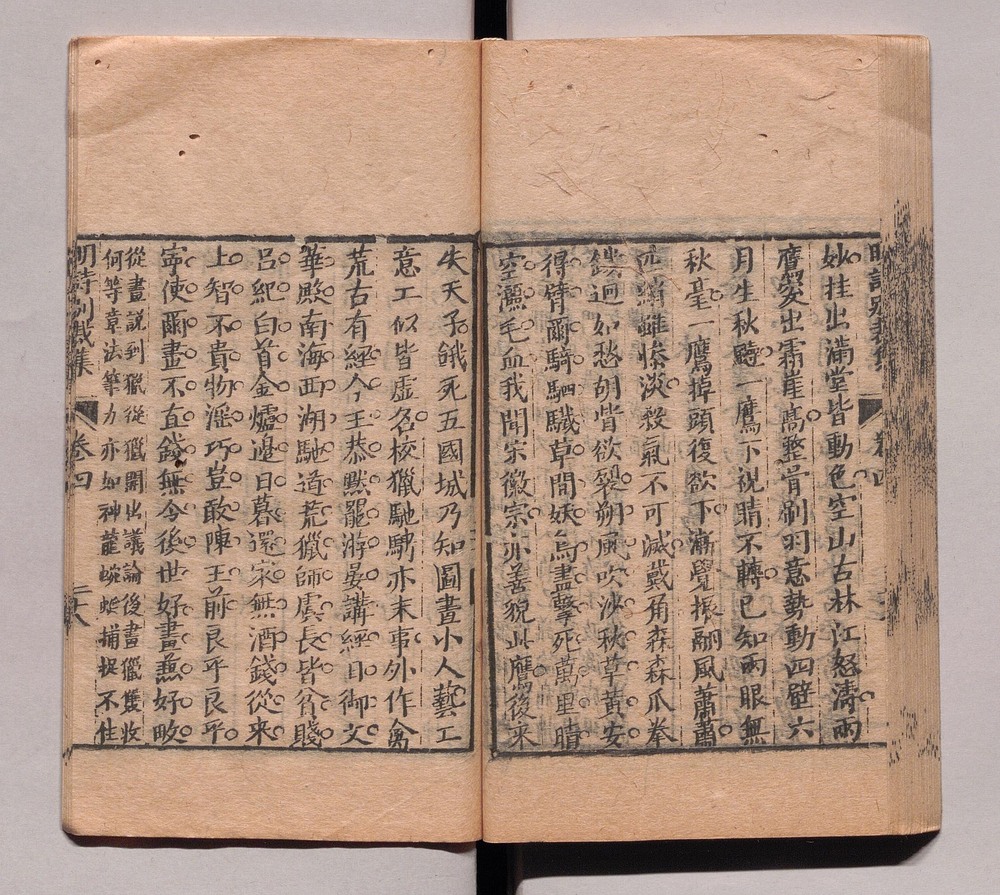 妙挂出滿堂皆動色空山古林江怒濤兩
鷹歘出霜崖高整骨刷羽意勢動四壁六
月生秋颷一鷹下視睛不轉已知兩眼無
秋毫一鷹掉頭復欲下漸覺振翮風蕭蕭
匹綃雖慘淡殺氣不可滅戴角森森爪拳
鐵迥如愁胡眥欲裂朔風吹沙秋草黃安
得臂爾騎駟驖草間妖鳥盡擊死萬里晴
空灑毛血我聞宋徽宗亦善貌此鷹後來
失天子餓死五國城乃知圖畫小人藝工
意工似皆虛名校獵馳騁亦末事外作禽
荒古有經今王恭默罷游晏講經日御文
華殿南海西湖馳道荒獵師虞長皆貧賤
呂紀白首金爐邊日暮還家無酒錢從來
上智不貴物淫巧豈敢陳王前良乎良乎
寧使爾畫不直錢無令後世好畫兼好畋
從畫說到獵從獵開出議論後畫獵雙收
何等章法筆力亦如神龍蜿蜒捕捉不住
明詩別裁集 卷四